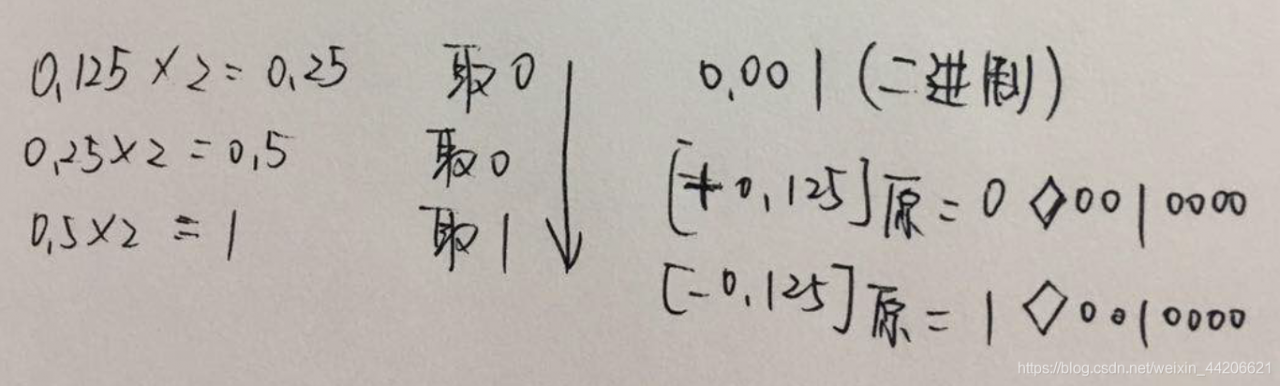 0.125×2=0.25 取0
0.25×2=0.5 取0
0.5×2=1 取1
0.001(二进制)
[+0.125]原=0◇0010000
[-0.125]原=1◇0010000
https://blog.csdn.net/weixin_44206621